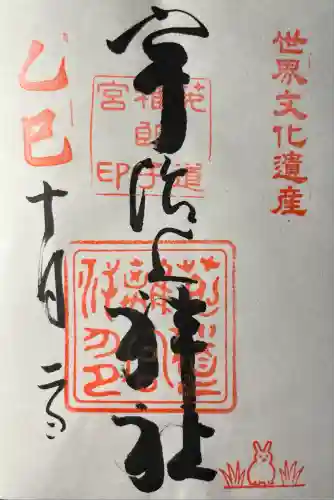 世界文化遺産
宇治上神社
菟道
稚郎子
宮印
乙巳
十月二日